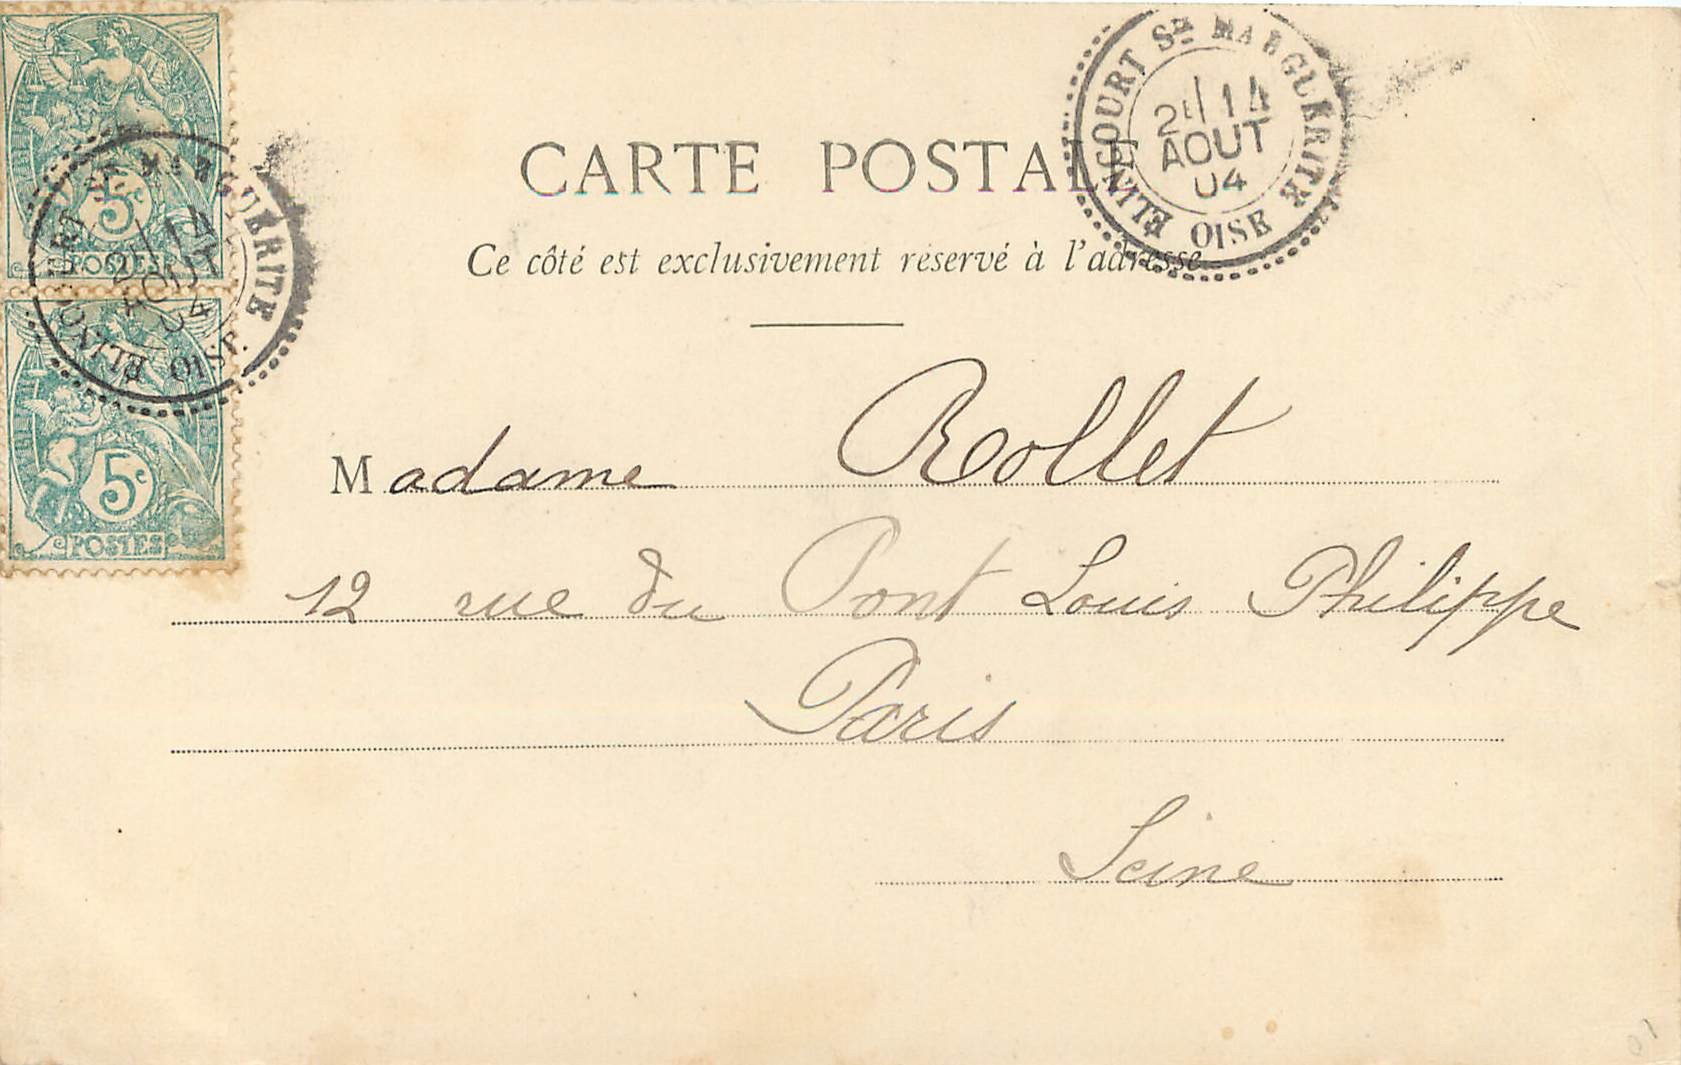 CARTE POSTALE
Ce côté est exclusivement réservé à l'adresse
ÉLINCOURT STE MARGUERITE
2E 14
AOUT
04
OISE
5c
POSTES
5c
POSTES
MARGUERITE
AOUT
OISE
Madame Rollet
12 rue du Pont Louis Philippe
Paris
Seine